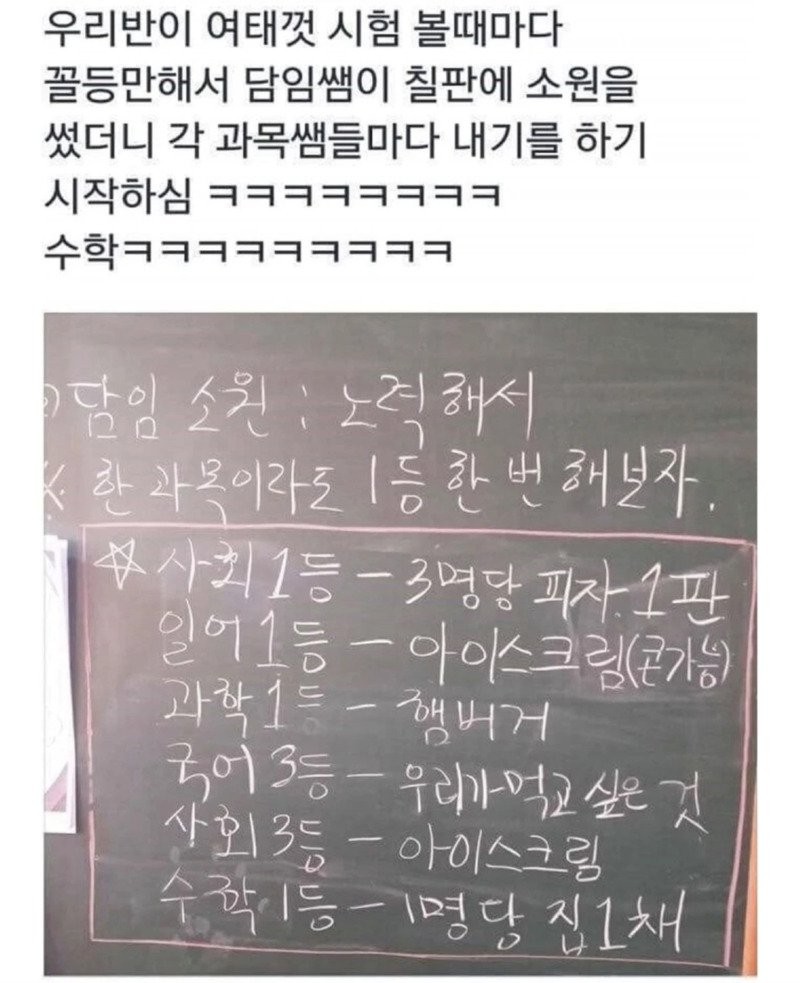 우리반이 여태껏 시험 볼때마다
꼴등만해서 담임쌤이 칠판에 소원을
썼더니 각 과목쌤들마다 내기를 하기
시작하심 ㅋㅋㅋㅋㅋㅋㅋㅋ
수학ㅋㅋㅋㅋㅋㅋㅋㅋㅋ
담임 소원 : 노력해서
한 과목이라도 1등 한 번 해보자.
☆사회 1등 - 3명당 피자 1판
일어 1등 - 아이스크림(콘가능)
과학 1등 - 햄버거
국어 3등 - 우리가 먹고 싶은 것
사회 3등 - 아이스크림
수학 1등 - 1명당 집 1채